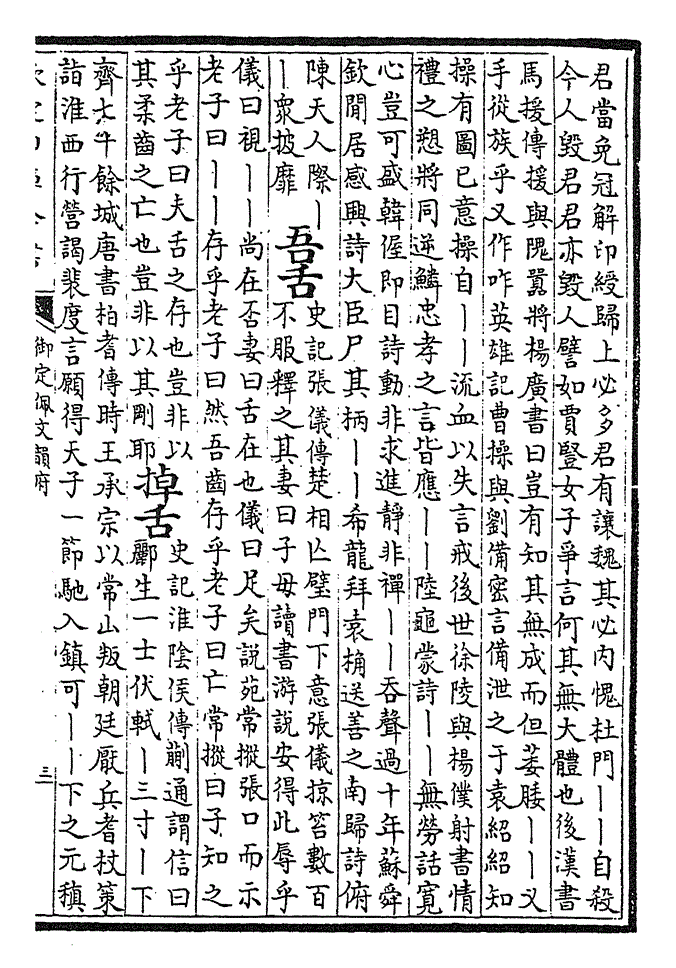 君當免冠解印綬歸上必多君有讓魏其必内愧杜門丨丨自殺
今人毀君君亦毀人譬如賈豎女子爭言何其無大體也後漢書
馬援傳援與隗囂將楊廣書曰豈有知其無成而但萎腇丨丨义
手從族乎又作咋英雄記曹操與劉備密言備泄之于袁紹紹知
操有圖已意操自丨丨流血以失言戒後世徐陵與楊僕射書情
禮之愬將同逆鱗忠孝之言皆應丨丨陸龜蒙詩丨丨無勞話寛
心豈可盛韓偓即目詩動非求進靜非禪丨丨吞聲過十年蘇舜
欽閒居感興詩大臣尸其柄丨丨希龍拜袁桷送善之南歸詩俯
陳天人際丨丨衆披靡
吾舌
史記張儀傳楚相亾璧門下意張儀掠笞數百不服釋之其妻曰子毋讀書游說安得此辱乎
儀曰視丨丨尚在否妻曰舌在也儀曰足矣説苑常摐張口而示
老子曰丨丨存乎老子曰然吾齒存乎老子曰亡常摐曰子知之
乎老子曰夫舌之存也豈非以其柔齒之亡也豈非以其剛耶
掉舌
史記淮陰侯傳蒯通謂信曰酈生一士伏軾丨三寸丨下
齊七十餘城唐書柏耆傳時王承宗以常山叛朝廷厭兵耆杖策
詣淮西行營謁裴度言願得天子一節馳入鎮可丨丨下之元稹
御定佩文韻府
三